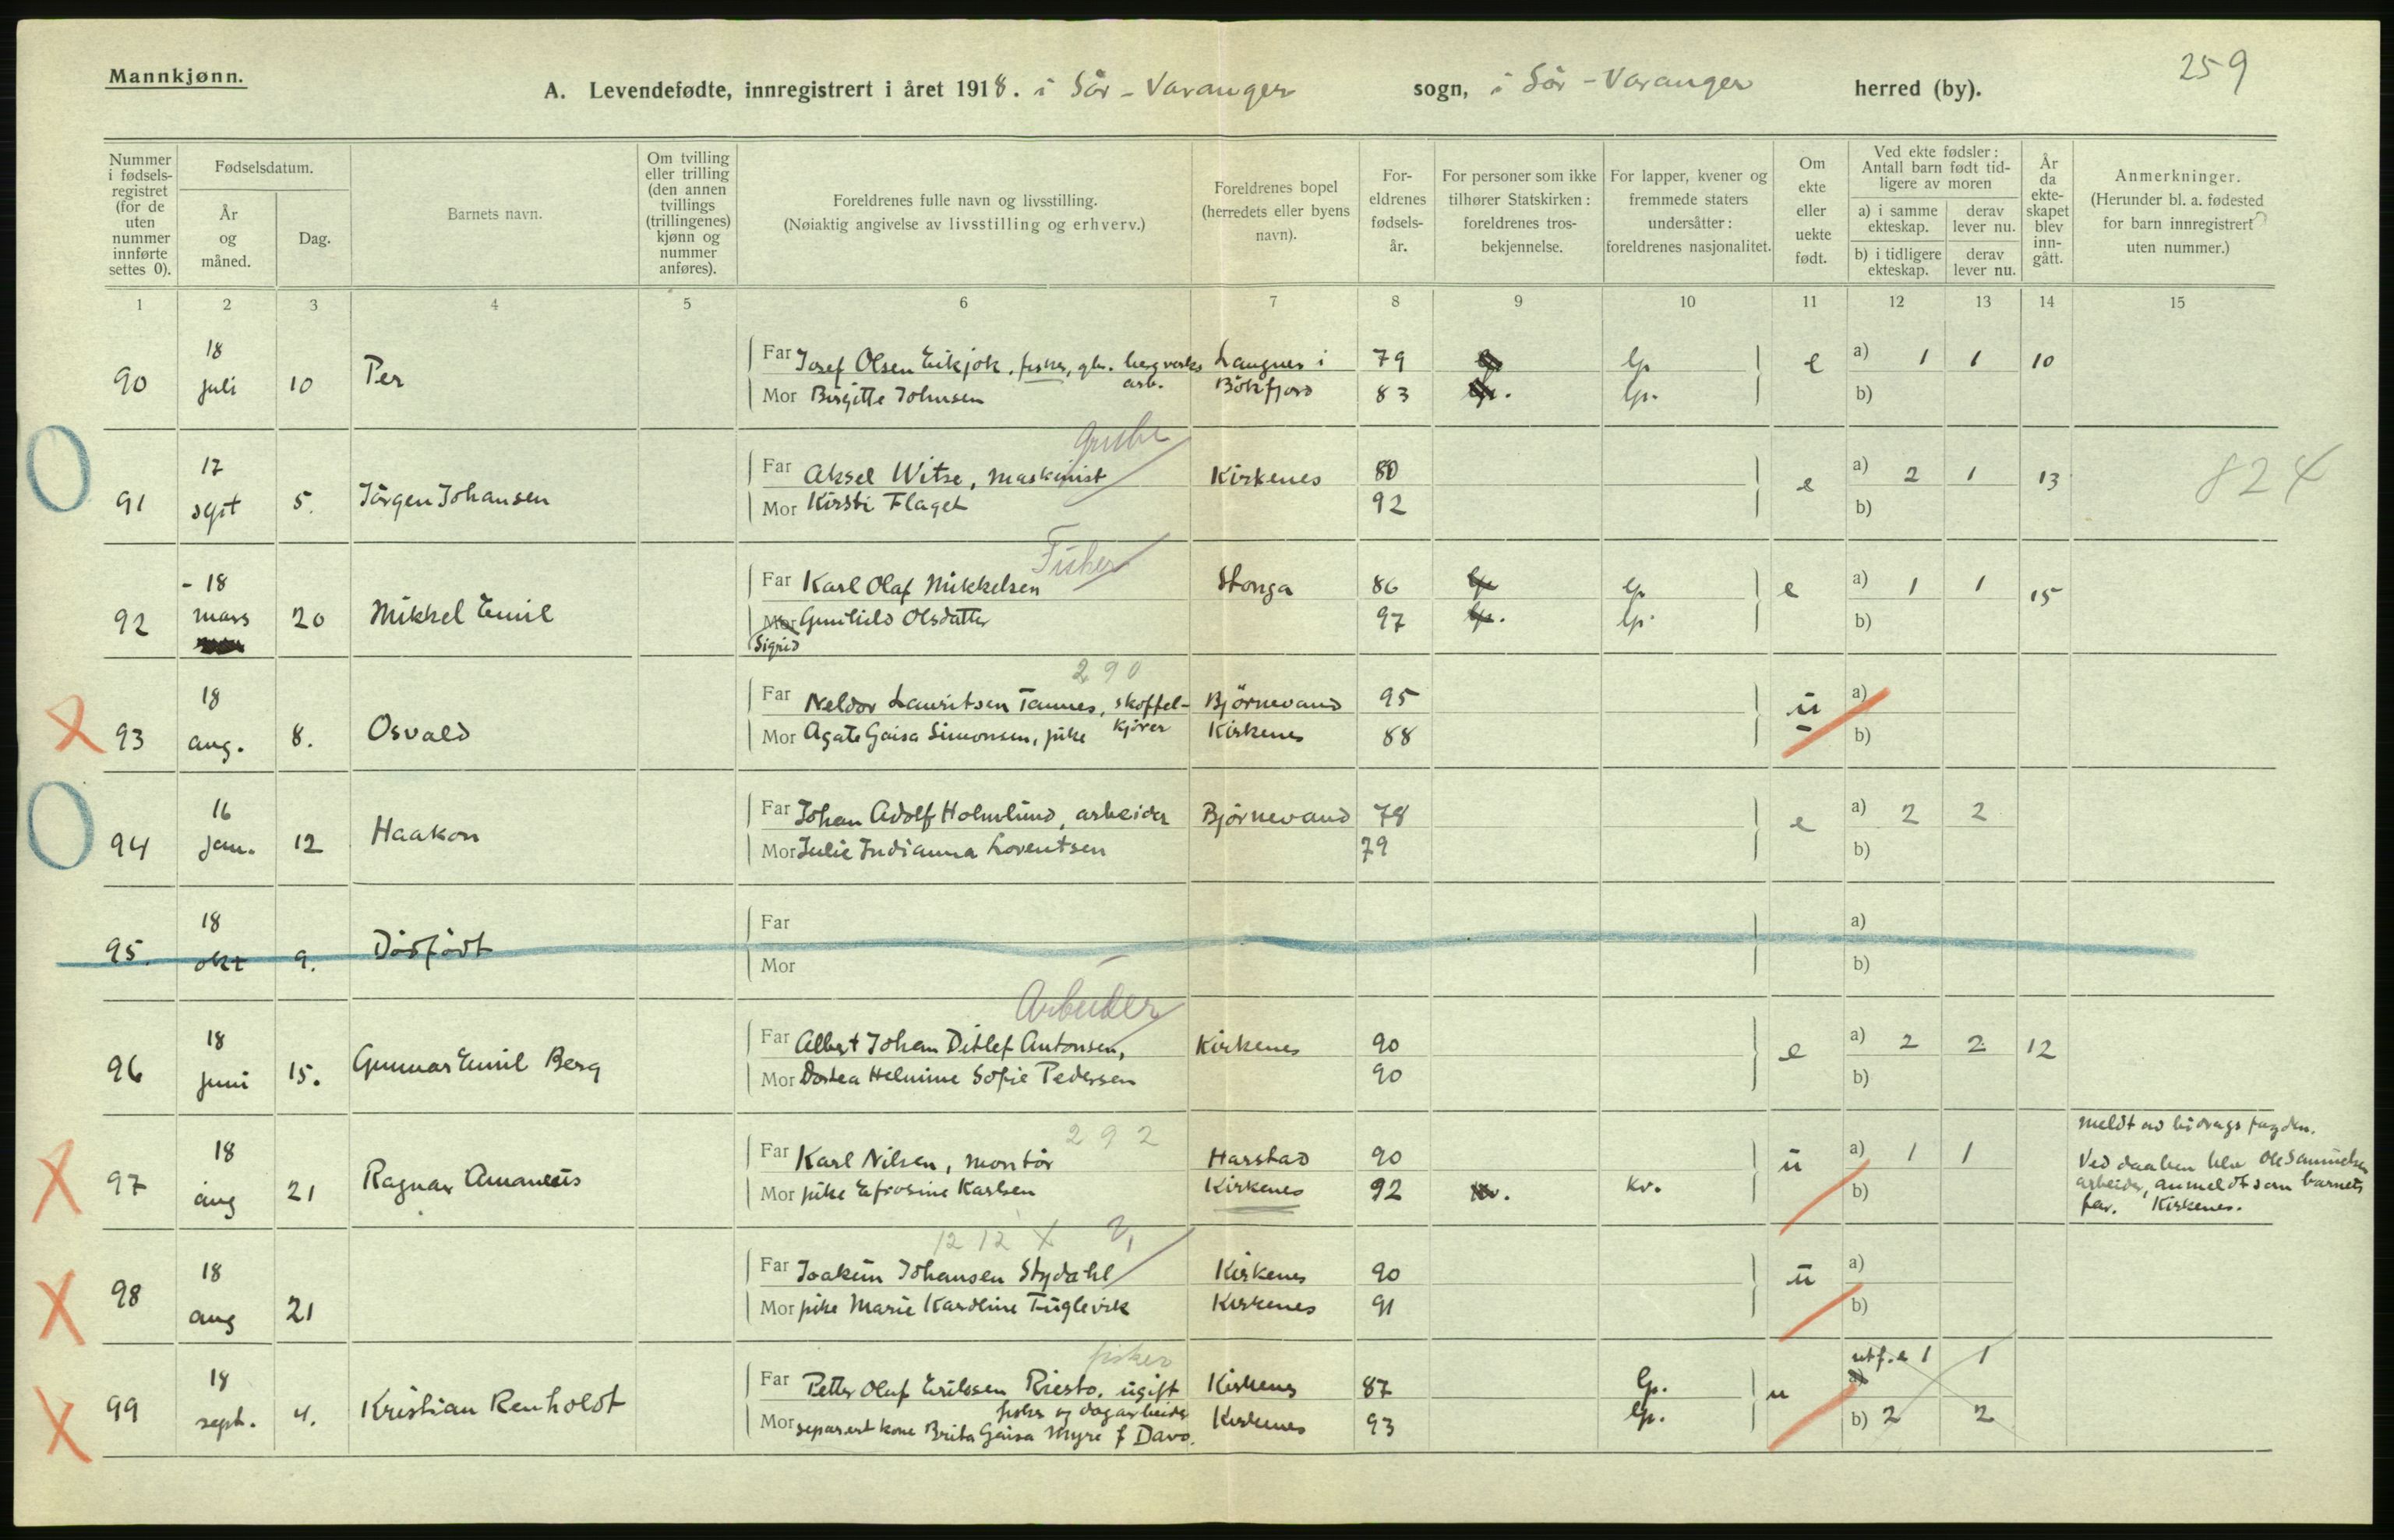 Mannkjønn.
259
A. Levendefødte, innregistrert i året 1918. i Sör-Varanger sogn, i Sör-Varanger herred (by).
Nummer i fødsels-registret (for de uten nummer innførte settes 0).
Fødselsdatum.
År og måned.
Dag.
Barnets navn.
Om tvilling eller trilling (den annen tvillings (trillingenes) kjønn og nummer anføres).
Foreldrenes fulle navn og livsstilling.
(Nøiaktig angivelse av livsstilling og erhverv.)
Foreldrenes bopel (herredets eller byens navn).
For-eldrenes fødsels-år.
For personer som ikke tilhører Statskirken: foreldrenes tros-bekjennelse.
For lapper, kvener og fremmede staters undersåtter: foreldrenes nasjonalitet.
Om ekte eller uekte født.
Ved ekte fødsler: Antall barn født tid-ligere av moren
a) i samme ekteskap.
derav lever nu.
b) i tidligere ekteskap.
derav lever nu.
År da ekte-skapet blev inn-gått.
Anmerkninger.
(Herunder bl. a. fødested for barn innregistrert uten nummer.)
1 2 3 4 5 6 7 8 9 10 11 12 13 14 15
90 18 juli 10 Per
Far Josef Olsen Eikjok, fisker, gbr. bergverks arb. Langnes i 79 lp e a) 1 1 10
Mor Birgitte Johnsen Bökfjord 83 lp. b)
Grube
91 17 sept 5. Jörgen Johansen
Far Aksel Witse, maskinist Kirkenes 80 e a) 2 1 13 824
Mor Kirsti Flaget 92 b)
Fisker
92 -18 mars 20 Mikkel Emil
Far Karl Olaf Mikkelsen Stonga 86 lp e a) 1 1 15
Mor Gunhild Olsdatter 97 lp. b)
Sigrid
290
93 18 aug. 8. Osvald
Far Neldor Lauritsen Tannes, skoffel-kjörer Björnevand 95 u a)
Mor Agate Gaisa Simonsen, pike Kirkenes 88 b)
94 16 jan. 12 Haakon
Far Johan Adolf Holmlund, arbeider Björnevand 78 e a) 2 2
Mor Julie Indianna Loventsen 79 b)
95. 18 okt 9. Dödfödt
Far a)
Mor b)
Arbeider
96 18 juni 15. Gunnar Emil Berg
Far Albert Johan Ditlef Antonsen, Kirkenes 90 e a) 2 2 12
Mor Dortea Helmine Sofie Pedersen 90 b)
292
97 18 aug 21 Ragnar Amaneus
Far Karl Nilsen, montör Harstad 90 u a) 1 1
Mor pike Efrosine Karlsen Kirkenes 92 kv. b)
meldt av bidragsfogden.
Ved daaben blev Ole Samuelsen
arbeider, anmeldt som barnets
far. Kirkenes.
1212 X
98 18 aug 21
Far Joakim Johansen Stydahl Kirkenes 90 u a)
Mor pike Marie Karoline Fuglevik Kirkenes 91 b)
fisker
99 18 sept. 4. Kristian Renholdt
Far Petter Olaf Eriksen Riesto, ugift fisker og dagarbeider Kirkenes 87 lp. u utf. e 1 1
a)
Mor separert kone Brita Gaisa Myre f Davo. Kirkenes 93 lp. b) 2 2